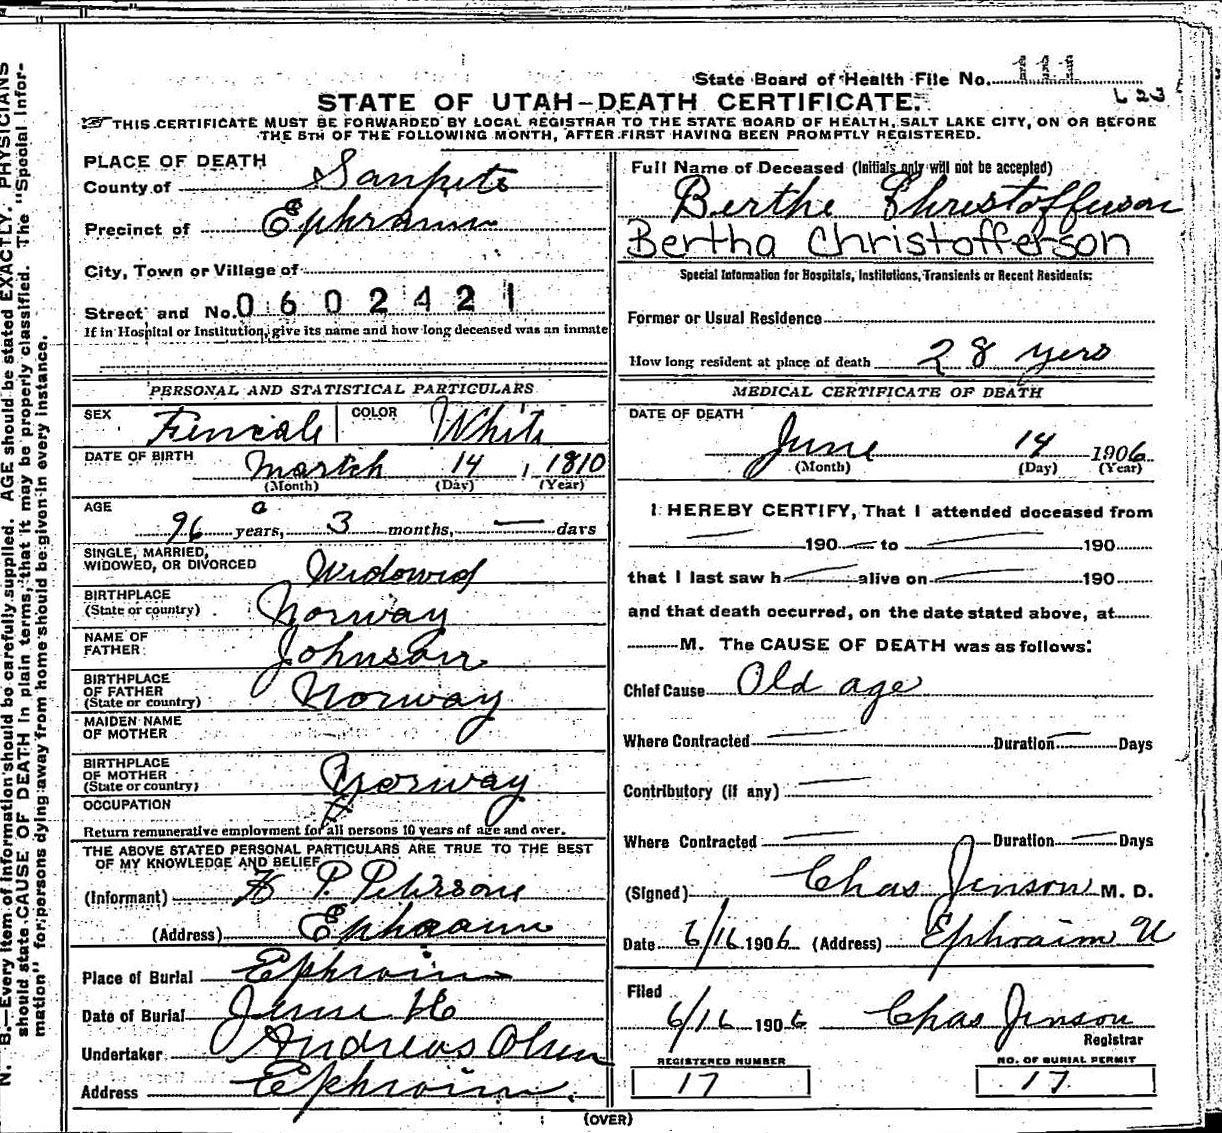 State Board of Health File No. 111
L 23
STATE OF UTAH—DEATH CERTIFICATE.
THIS CERTIFICATE MUST BE FORWARDED BY LOCAL REGISTRAR TO THE STATE BOARD OF HEALTH, SALT LAKE CITY, ON OR BEFORE
THE 5TH OF THE FOLLOWING MONTH, AFTER FIRST HAVING BEEN PROMPTLY REGISTERED.
PLACE OF DEATH
County of Sanpete
Precinct of Ephraim
City, Town or Village of
Street and No. 0602421
If in Hospital or Institution, give its name and how long deceased was an inmate
Full Name of Deceased (Initials only will not be accepted)
Berthe Christofferson
Bertha Christofferson
Special Information for Hospitals, Institutions, Transients or Recent Residents:
Former or Usual Residence
How long resident at place of death 28 yers
PERSONAL AND STATISTICAL PARTICULARS
SEX Female COLOR White
DATE OF BIRTH March 14, 1810
(Month) (Day) (Year)
AGE
96 years, 3 months, — days
SINGLE, MARRIED,
WIDOWED, OR DIVORCED Widowed
BIRTHPLACE
(State or country) Norway
NAME OF
FATHER Johnson
BIRTHPLACE
OF FATHER
(State or country) Norway
MAIDEN NAME
OF MOTHER
BIRTHPLACE
OF MOTHER
(State or country) Norway
OCCUPATION
Return remunerative employment for all persons 10 years of age and over.
THE ABOVE STATED PERSONAL PARTICULARS ARE TRUE TO THE BEST
OF MY KNOWLEDGE AND BELIEF
(Informant) P. Petersone
(Address) Ephraim
Place of Burial Ephraim
Date of Burial June 16
Undertaker Andreas Olsen
Address Ephraim.
MEDICAL CERTIFICATE OF DEATH
DATE OF DEATH
June 14 1906
(Month) (Day) (Year)
I HEREBY CERTIFY, That I attended deceased from
— 190 — to — 190
that I last saw h — alive on — 190
and that death occurred, on the date stated above, at
M. The CAUSE OF DEATH was as follows:
Chief Cause Old age
Where Contracted — Duration — Days
Contributory (if any) —
Where Contracted — Duration — Days
(Signed) Chas Jenson M. D.
Date 6/16 1906 (Address) Ephraim U
Filed
6/16 1906 Chas Jenson
Registrar
REGISTERED NUMBER
17
NO. OF BURIAL PERMIT
17
(OVER)
N. B.—Every item of information should be carefully supplied. AGE should be stated EXACTLY. PHYSICIANS
should state CAUSE OF DEATH in plain terms, that it may be properly classified. The "Special Infor-
mation" for persons dying away from home should be given in every instance.